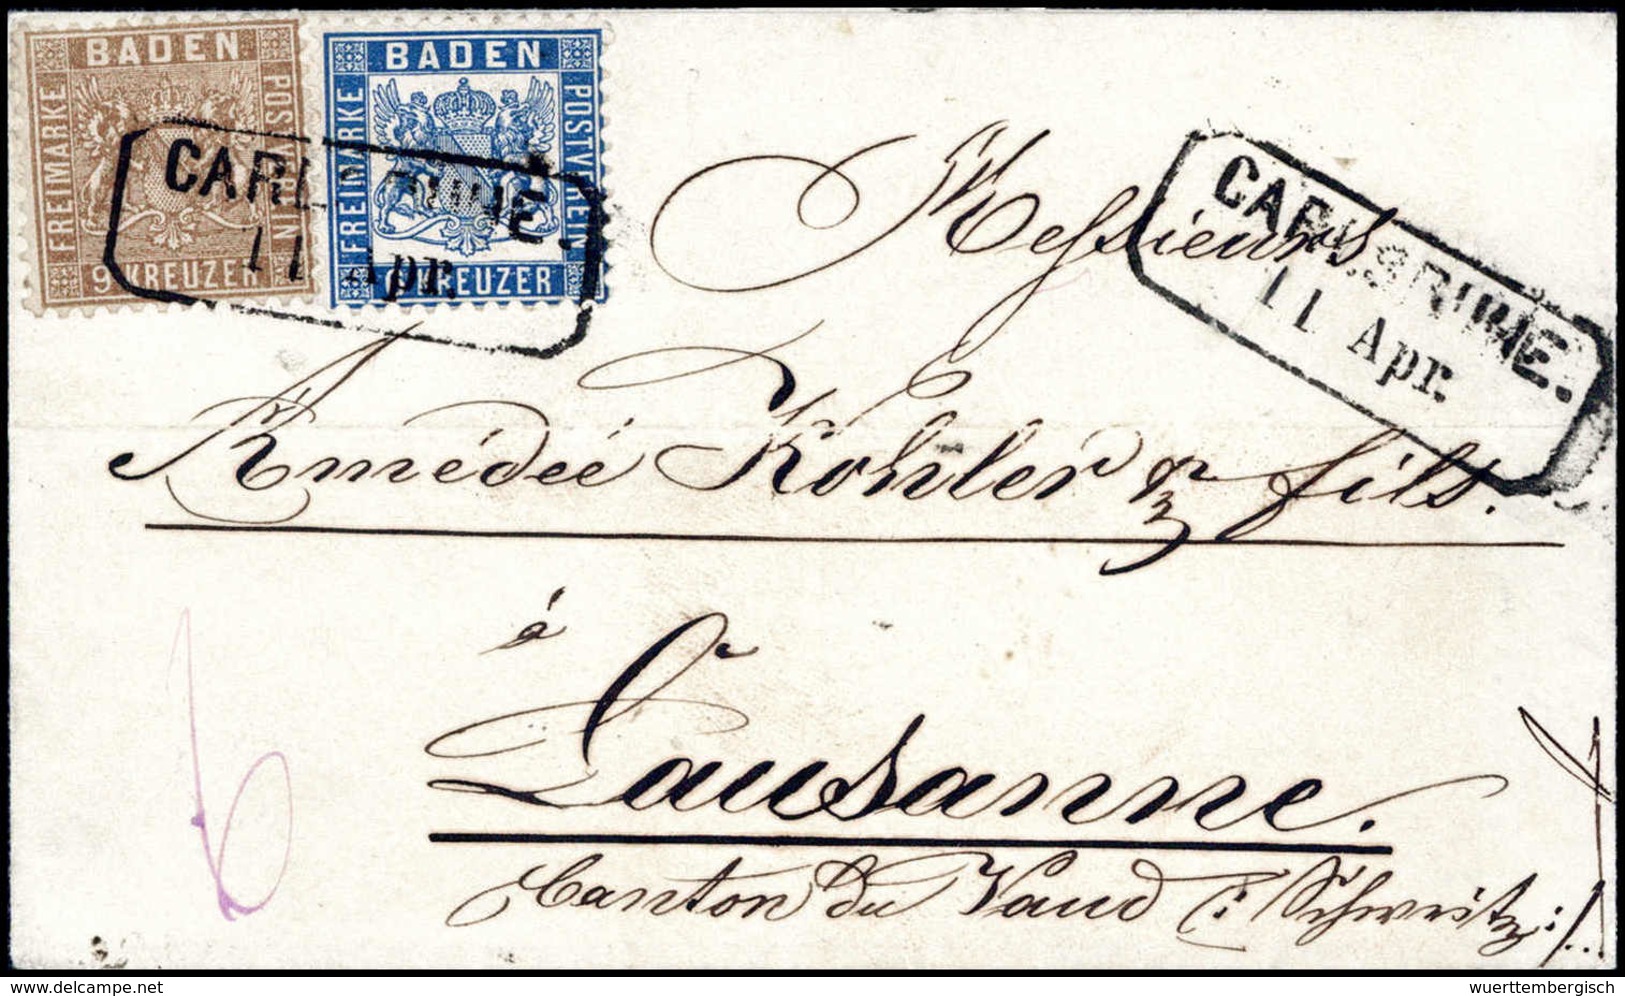 BADEN
FREIMARKE
POSTVEREIN
9 KREUZER
BADEN
FREIMARKE
POSTVEREIN
6 KREUZER
CARLSRUHE.
11 Apr.
CARLSRUHE.
11 Apr.
Messieurs
Amédée Kohler & fils.
à
Lausanne.
Canton du Vaud (: Schweitz :)
6
www.delcampe.net
wuerttembergisch